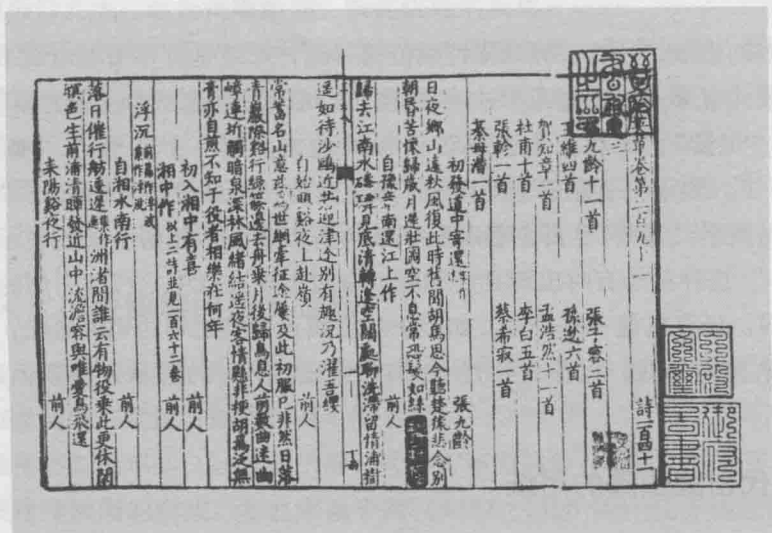 華卷第二百九十
詩一百四十一
張九齡十一首 張子容二首
王維四首 孫逖六首
賀知章一首 孟浩然十一首
杜甫十首 李白五首
張軫一首 蔡希寂一首
綦毋潛一首
初發道中寄遠 張九齡
日夜鄉山遠秋風復此時舊聞胡馬思今聽楚猿悲念別
朝昏苦懷歸歲月遲壯圖空不息常恐髮如絲
自豫章南還江上作 前人
歸去江南水磷磷見底清轉逢空闊處聊洗滯留情浦樹
遙如待沙鷗近若迎津途別有趣況乃濯吾纓
自始興谿夜上赴嶺 前人
嘗蓄名山意茲為世網牽征途屢及此初服已非然日落
青巖際谿行綠篠邊去舟乘月後歸鳥息人前數曲迷幽
嶂連圻觸暗泉深林風緒結遙夜客情懸非梗胡為泛無
膏亦自煎不知于役者相樂在何年
初入湘中有喜 前人
湘中作 以上二詩並見一百六十二卷 前人
浮沉
自湘水南行 前人
落日催行舫逶迤洲渚間誰云有物役乘此更休閒
暝色生前浦清暉發近山中流澹容與唯愛鳥飛還
耒陽谿夜行 前人